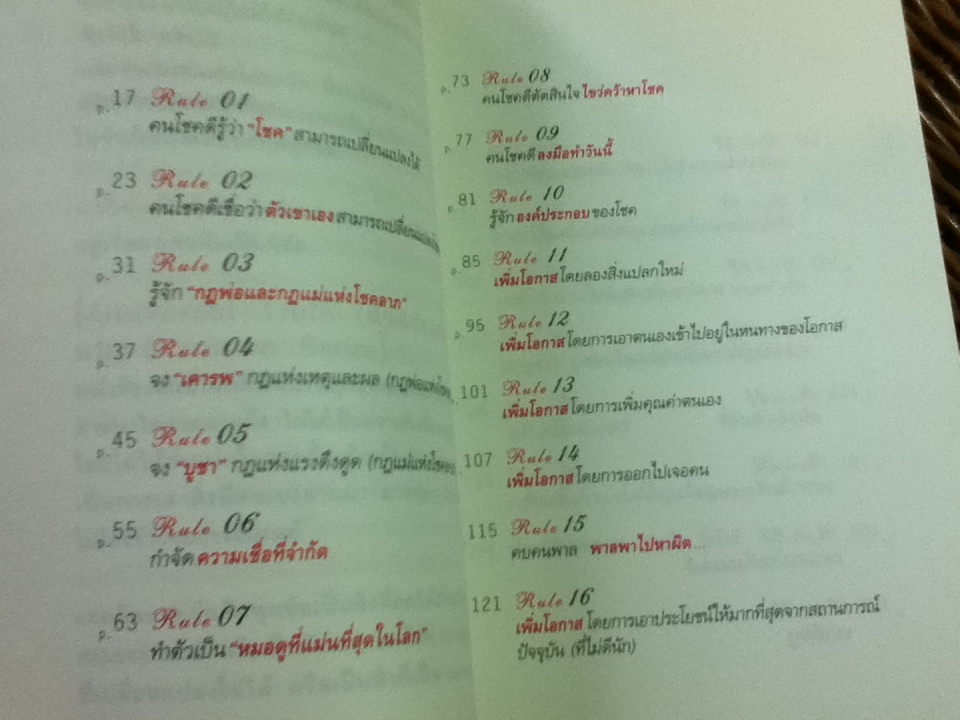 p.17 Rule 01
คนโชคดีรู้ว่า "โชค" สามารถเปลี่ยนแปลงได้
p.23 Rule 02
คนโชคดีเชื่อว่าตัวเขาเองสามารถเปลี่ยนแปลง
p.31 Rule 03
รู้จัก "กฎพ่อและกฎแม่แห่งโชคลาภ"
p.37 Rule 04
จง "เคารพ" กฎแห่งเหตุและผล (กฎพ่อแห่งโชค
p.45 Rule 05
จง "บูชา" กฎแห่งแรงดึงดูด (กฎแม่แห่งโชค
p.55 Rule 06
กำจัดความเชื่อที่จำกัด
p.63 Rule 07
ทำตัวเป็น "หมอดูที่แม่นที่สุดในโลก"
p.73 Rule 08
คนโชคดีตัดสินใจไขว่คว้าหาโชค
p.77 Rule 09
คนโชคดีลงมือทำวันนี้
p.81 Rule 10
รู้จักองค์ประกอบของโชค
p.85 Rule 11
เพิ่มโอกาสโดยลองสิ่งแปลกใหม่
p.95 Rule 12
เพิ่มโอกาสโดยการเอาตนเองเข้าไปอยู่ในหนทางของโอกาส
101 Rule 13
เพิ่มโอกาสโดยการเพิ่มคุณค่าตนเอง
107 Rule 14
เพิ่มโอกาสโดยการออกไปเจอคน
115 Rule 15
คบคนพาล พาลพาไปหาผิด...
121 Rule 16
เพิ่มโอกาสโดยการเอาประโยชน์ให้มากที่สุดจากสถานการณ์
ปัจจุบัน (ที่ไม่ดีนัก)